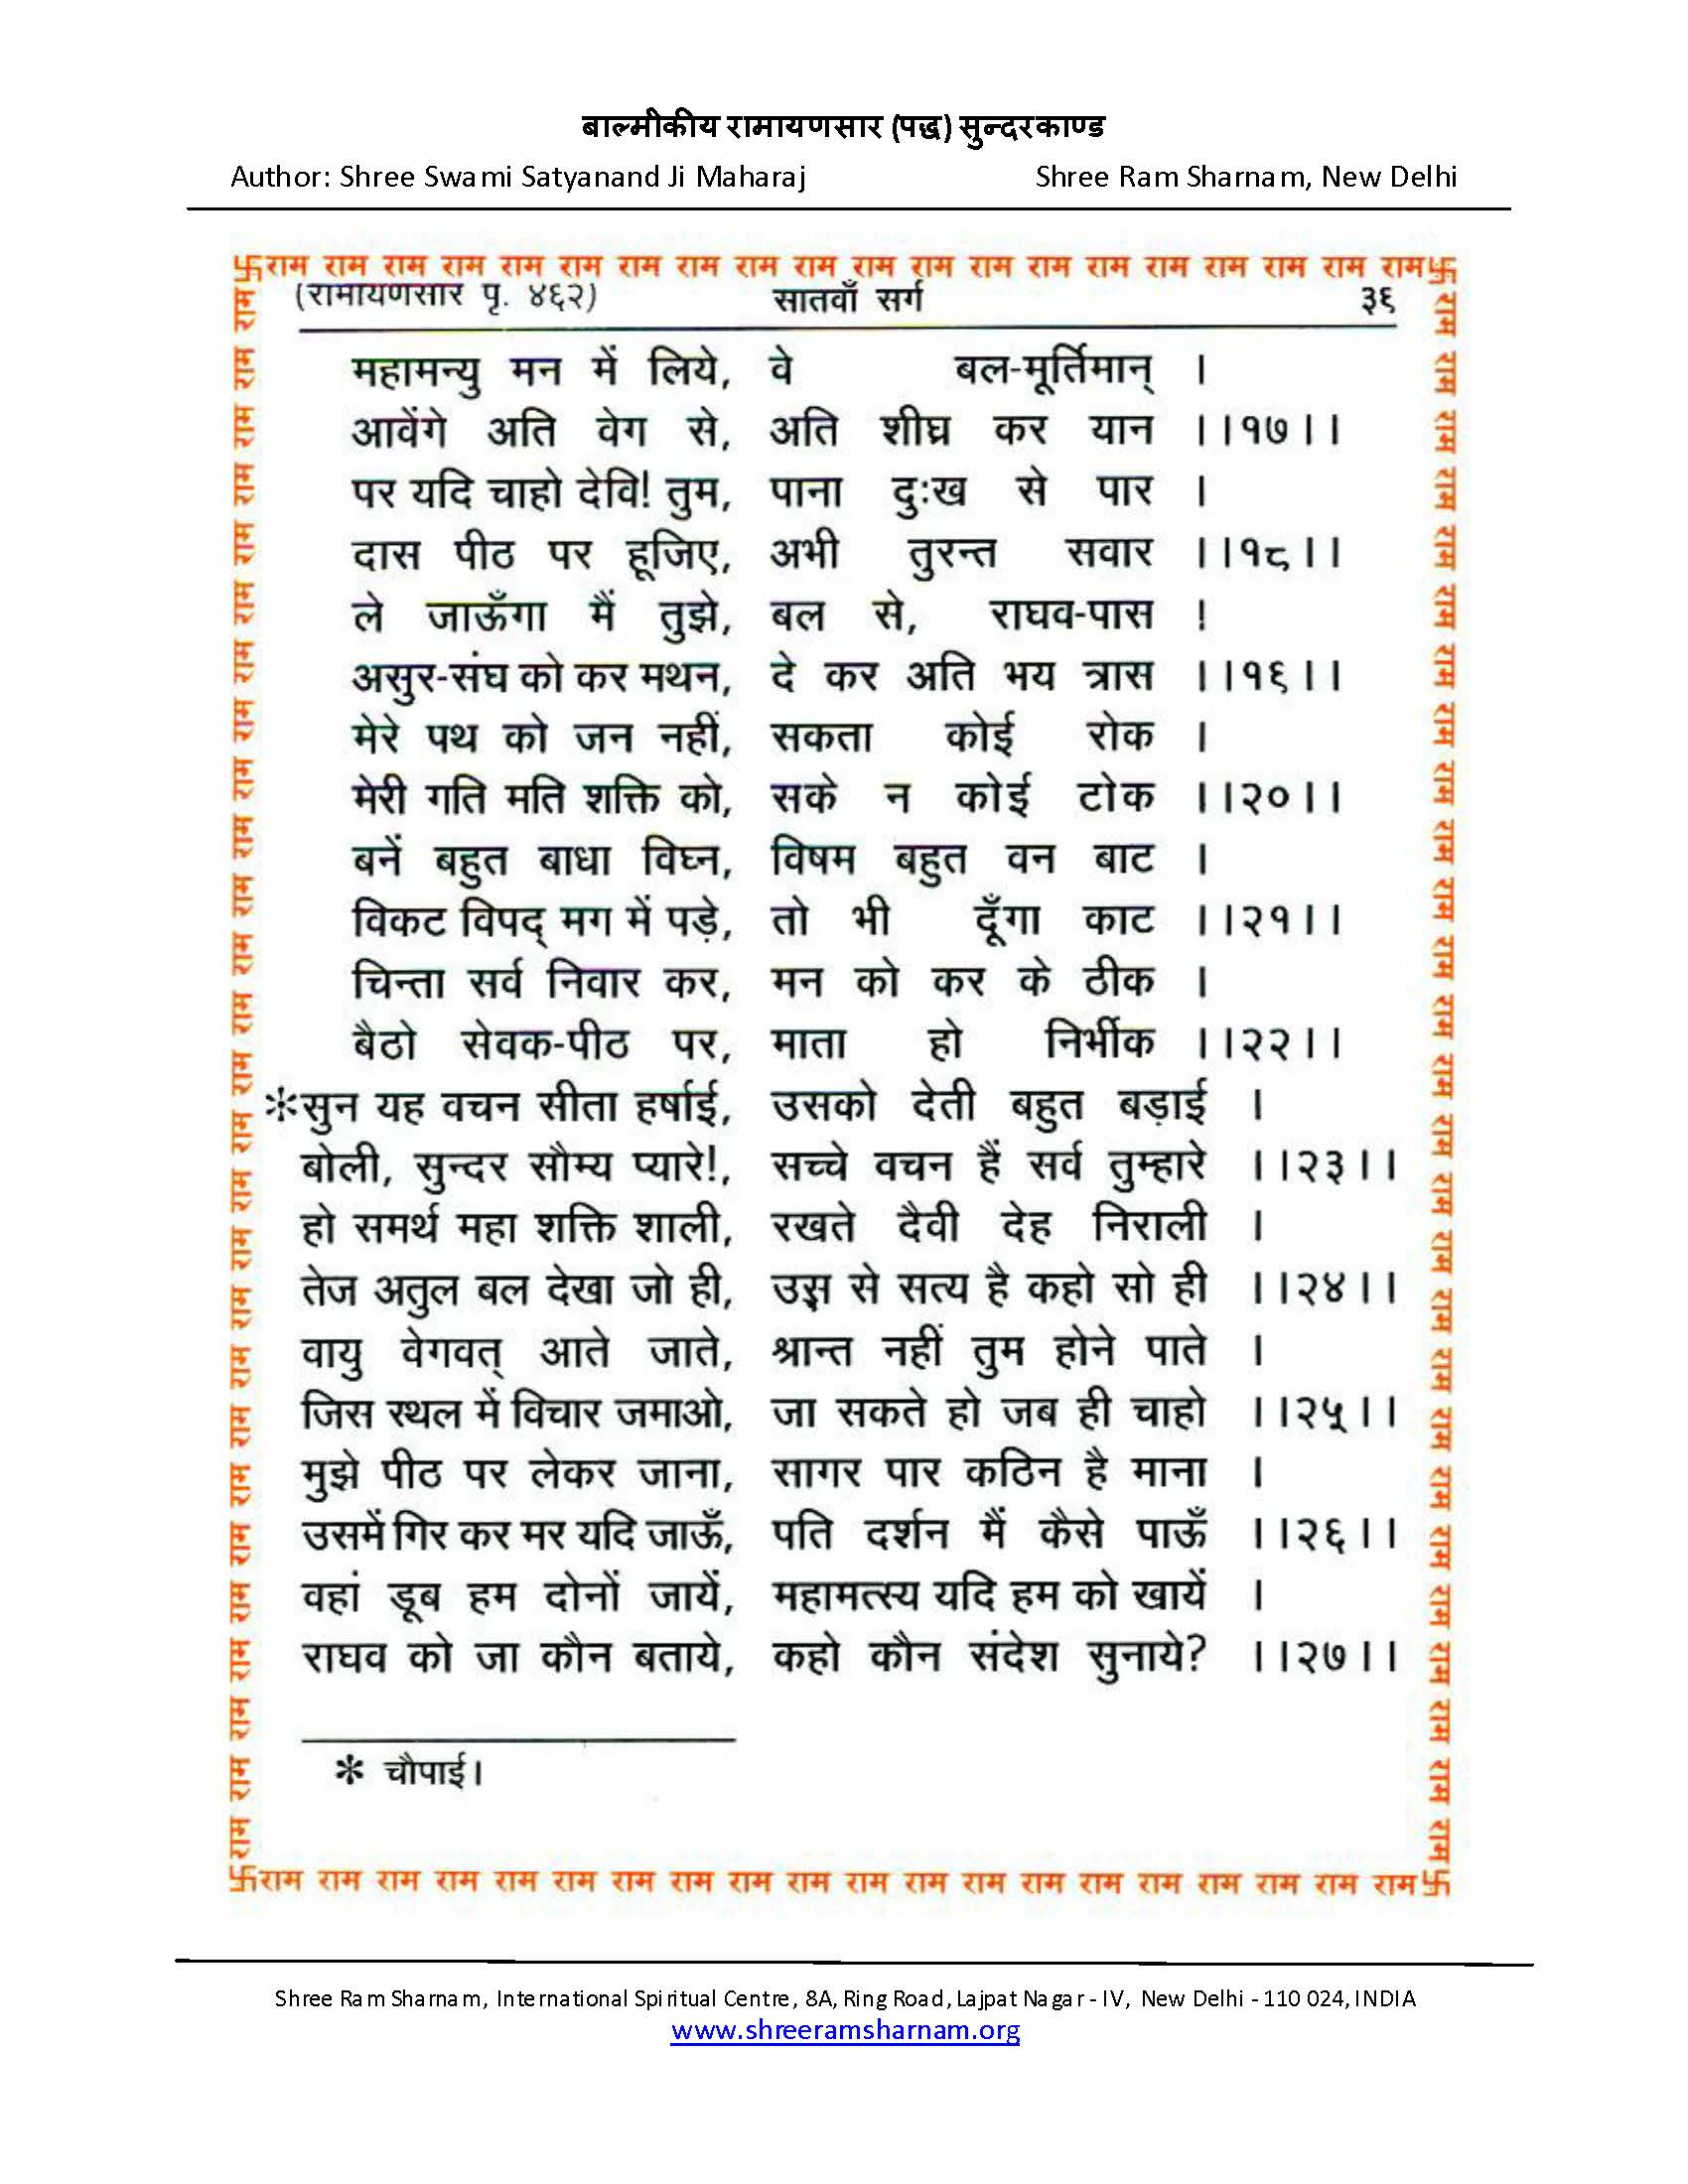 बाल्मीकीय रामायणसार (पद्ध) सुन्दरकाण्ड
Author: Shree Swami Satyanand Ji Maharaj Shree Ram Sharnam, New Delhi
卐राम राम राम राम राम राम राम राम राम राम राम राम राम राम राम राम राम राम राम राम卐
(रामायणसार पृ. ४६२) सातवाँ सर्ग ३९
महामन्यु मन में लिये, वे बल-मूर्तिमान् ।
आवेंगे अति वेग से, अति शीघ्र कर यान ।।१७।।
पर यदि चाहो देवि! तुम, पाना दुःख से पार ।
दास पीठ पर हूजिए, अभी तुरन्त सवार ।।१८।।
ले जाऊँगा मैं तुझे, बल से, राघव-पास !
असुर-संघ को कर मथन, दे कर अति भय त्रास ।।१९।।
मेरे पथ को जन नहीं, सकता कोई रोक ।
मेरी गति मति शक्ति को, सके न कोई टोक ।।२०।।
बनें बहुत बाधा विघ्न, विषम बहुत वन बाट ।
विकट विपद् मग में पड़े, तो भी दूँगा काट ।।२१।।
चिन्ता सर्व निवार कर, मन को कर के ठीक ।
बैठो सेवक-पीठ पर, माता हो निर्भीक ।।२२।।
*सुन यह वचन सीता हर्षाई, उसको देती बहुत बड़ाई ।
बोली, सुन्दर सौम्य प्यारे!, सच्चे वचन हैं सर्व तुम्हारे ।।२३।।
हो समर्थ महा शक्ति शाली, रखते दैवी देह निराली ।
तेज अतुल बल देखा जो ही, उस से सत्य है कहो सो ही ।।२४।।
वायु वेगवत् आते जाते, श्रान्त नहीं तुम होने पाते ।
जिस स्थल में विचार जमाओ, जा सकते हो जब ही चाहो ।।२५।।
मुझे पीठ पर लेकर जाना, सागर पार कठिन है माना ।
उसमें गिर कर मर यदि जाऊँ, पति दर्शन मैं कैसे पाऊँ ।।२६।।
वहां डूब हम दोनों जायें, महामत्स्य यदि हम को खायें ।
राघव को जा कौन बताये, कहो कौन संदेश सुनाये? ।।२७।।
* चौपाई।
卐राम राम राम राम राम राम राम राम राम राम राम राम राम राम राम राम राम राम राम राम卐
Shree Ram Sharnam, International Spiritual Centre, 8A, Ring Road, Lajpat Nagar - IV, New Delhi - 110 024, INDIA
www.shreeramsharnam.org